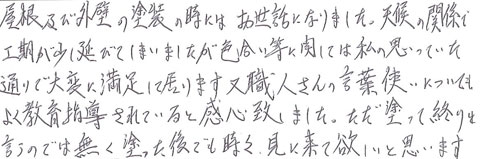 屋根及び外壁の塗装の時にはお世話になりました。天候の関係で
工期が少し延びてしまいましたが色合い等に関しては私の思っていた
通りで大変に満足して居ります又職人さんの言葉使いについても
よく教育指導されていると感心致しました。ただ塗って終りと
言うのでは無く塗った後でも時々見に来て欲しいと思います